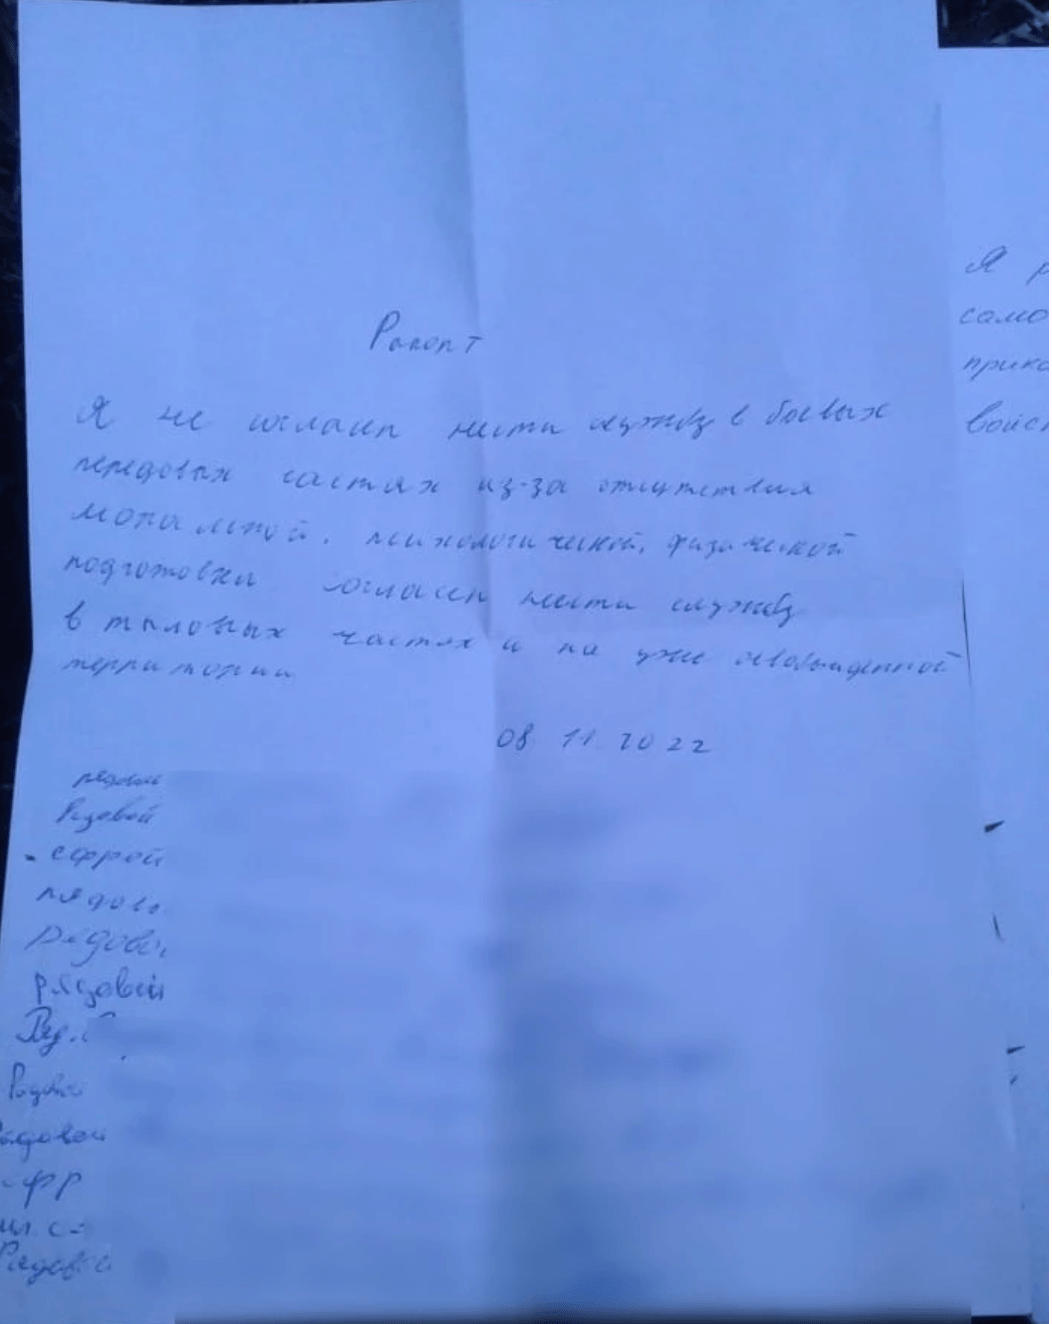 Рапорт
Я не согласен нести службу в боевых
передовых частях из-за отсутствия
моральной, психологической, физической
подготовки согласен нести службу
в тыловых частях и на уже освобожденной
территории
08 11 2022
рядовой
Рядовой
ефрей
рядово
рядово
рядовой
Ряд.
Рядово
рядовой
ефр
мл. с-
Рядовой
Я р
само
прика
войс